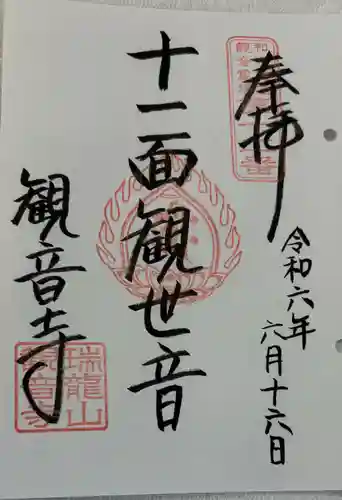 奉拝
令和六年
六月十六日
十一面観世音
観音寺
瑞龍山
観音寺